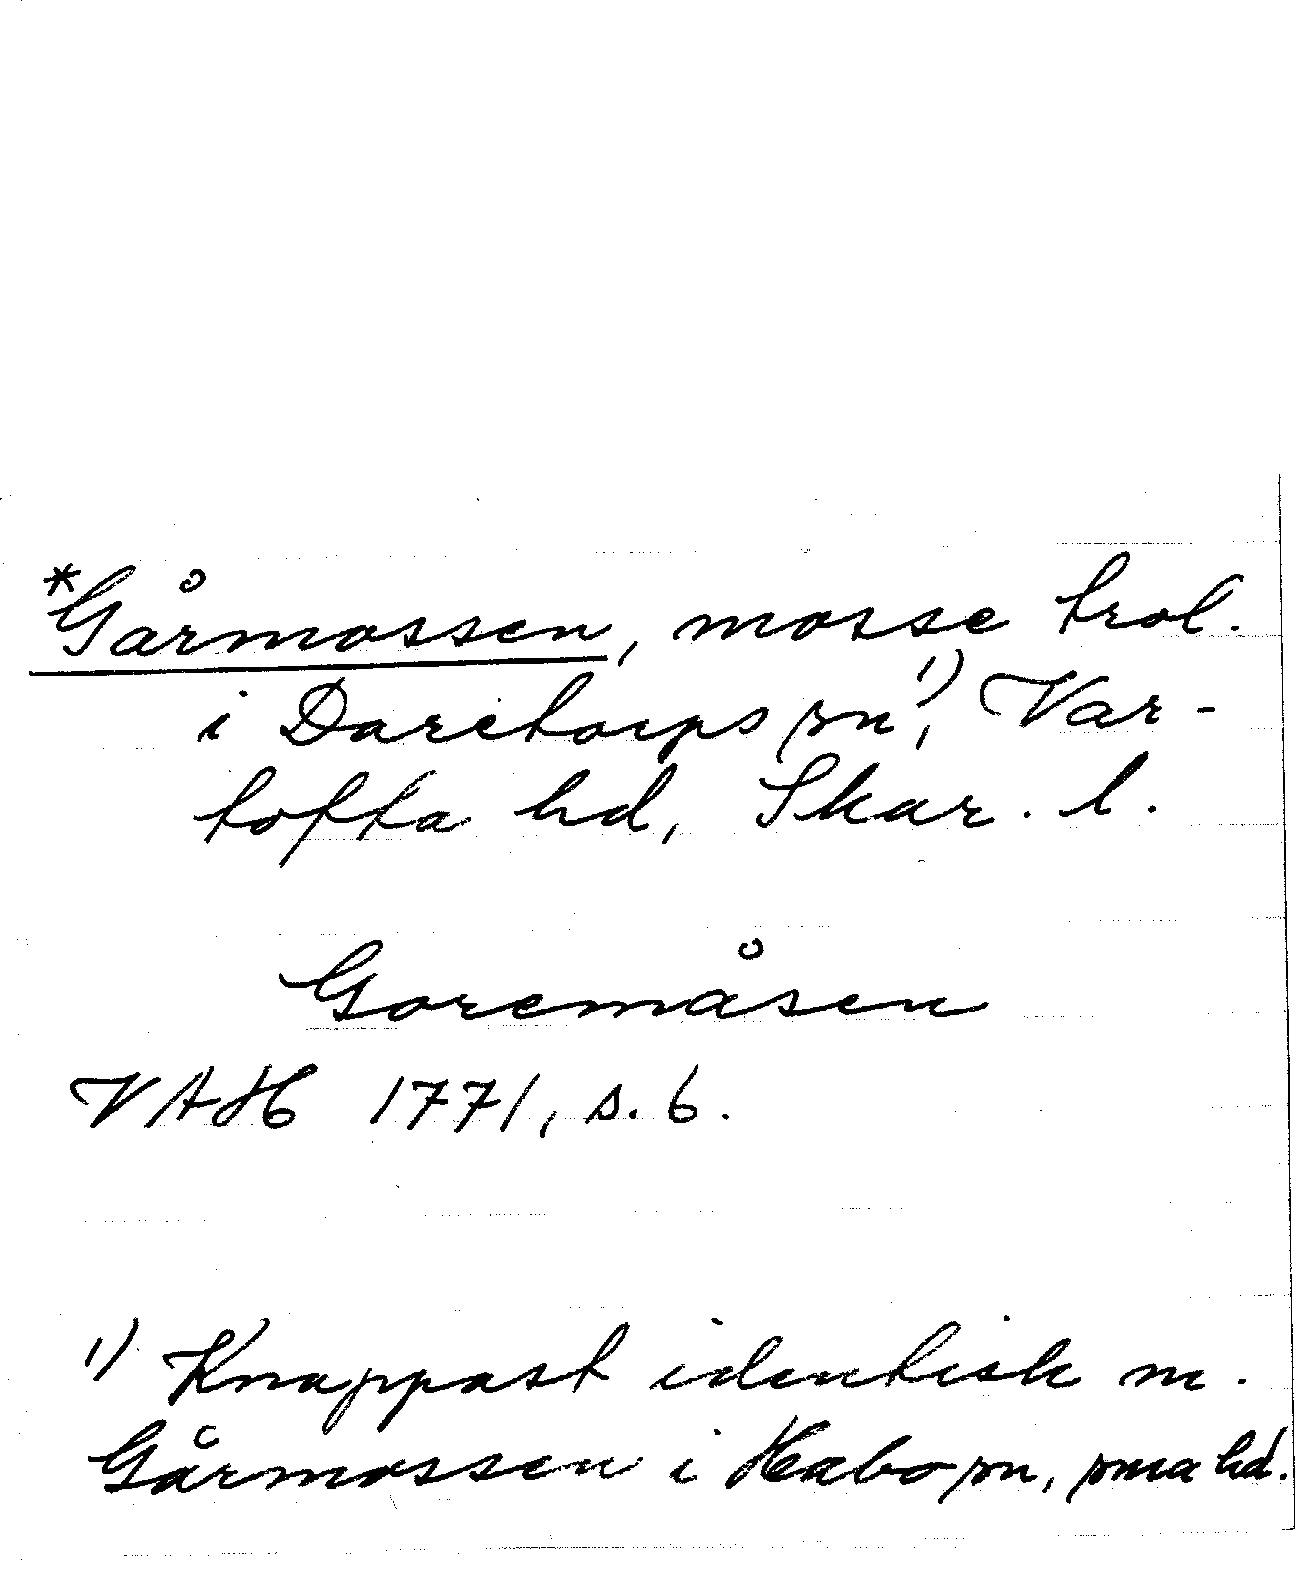 *Gårmossen, mosse trol.
i Daretorps sn¹⁾, Var-
tofta hd, Skar. l.
Goremåsen
VAH 1771, s. 6.
1) Knappast identisk m.
Gårmossen i Habo sn, sma hd.